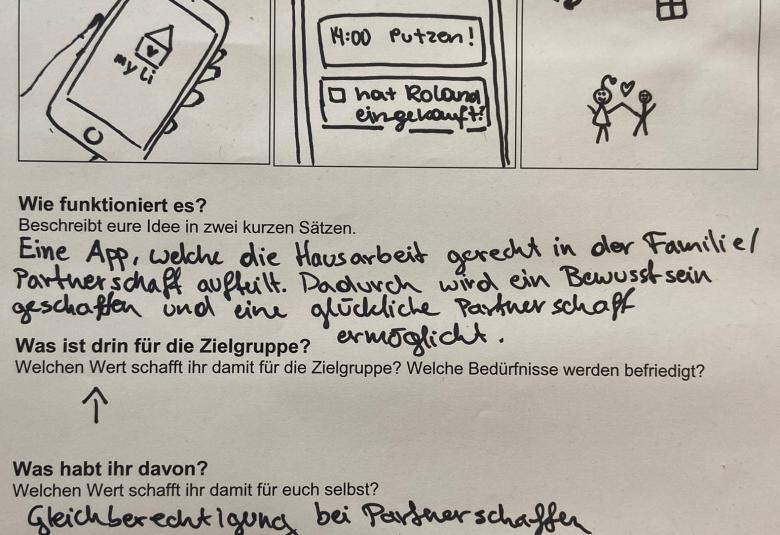 my Li
14:00 Putzen!
hat Roland
eingekauft?
Wie funktioniert es?
Beschreibt eure Idee in zwei kurzen Sätzen.
Eine App, welche die Hausarbeit gerecht in der Familie/
Partnerschaft aufteilt. Dadurch wird ein Bewusstsein
geschaffen und eine glückliche Partnerschaft
ermöglicht.
Was ist drin für die Zielgruppe?
Welchen Wert schafft ihr damit für die Zielgruppe? Welche Bedürfnisse werden befriedigt?
Was habt ihr davon?
Welchen Wert schafft ihr damit für euch selbst?
Gleichberechtigung bei Partnerschaffen